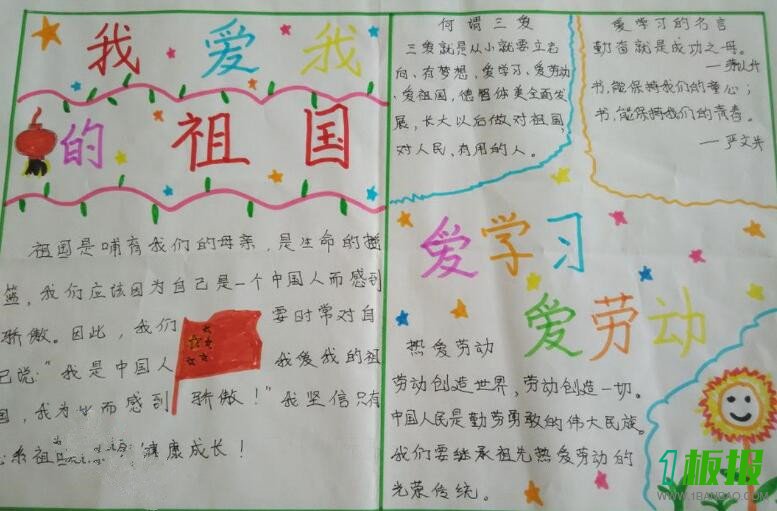 我爱我
的祖国
祖国是哺育我们的母亲,是生命的摇
篮,我们应该因为自己是一个中国人而感到
骄傲。因此,我们要时常对自
己说:“我是中国人 我爱我的祖
国,我为 而感到骄傲!”我坚信只有
心系祖 健康成长!
何谓三爱
三爱就是从小就要立志
向、有梦想,爱学习、爱劳动、
爱祖国,德智体美全面发
展,长大以后做对祖国,
对人民,有用的人。
爱学习的名言
勤奋就是成功之母。
书,能保持我们的童心;
书,能保持我们的青春。
—严文井
爱学习
爱劳动
热爱劳动
劳动创造世界,劳动创造一切。
中国人民是勤劳勇敢的伟大民族。
我们要继承祖先热爱劳动的
光荣传统。
1板报
WWW.1BANBAO.COM